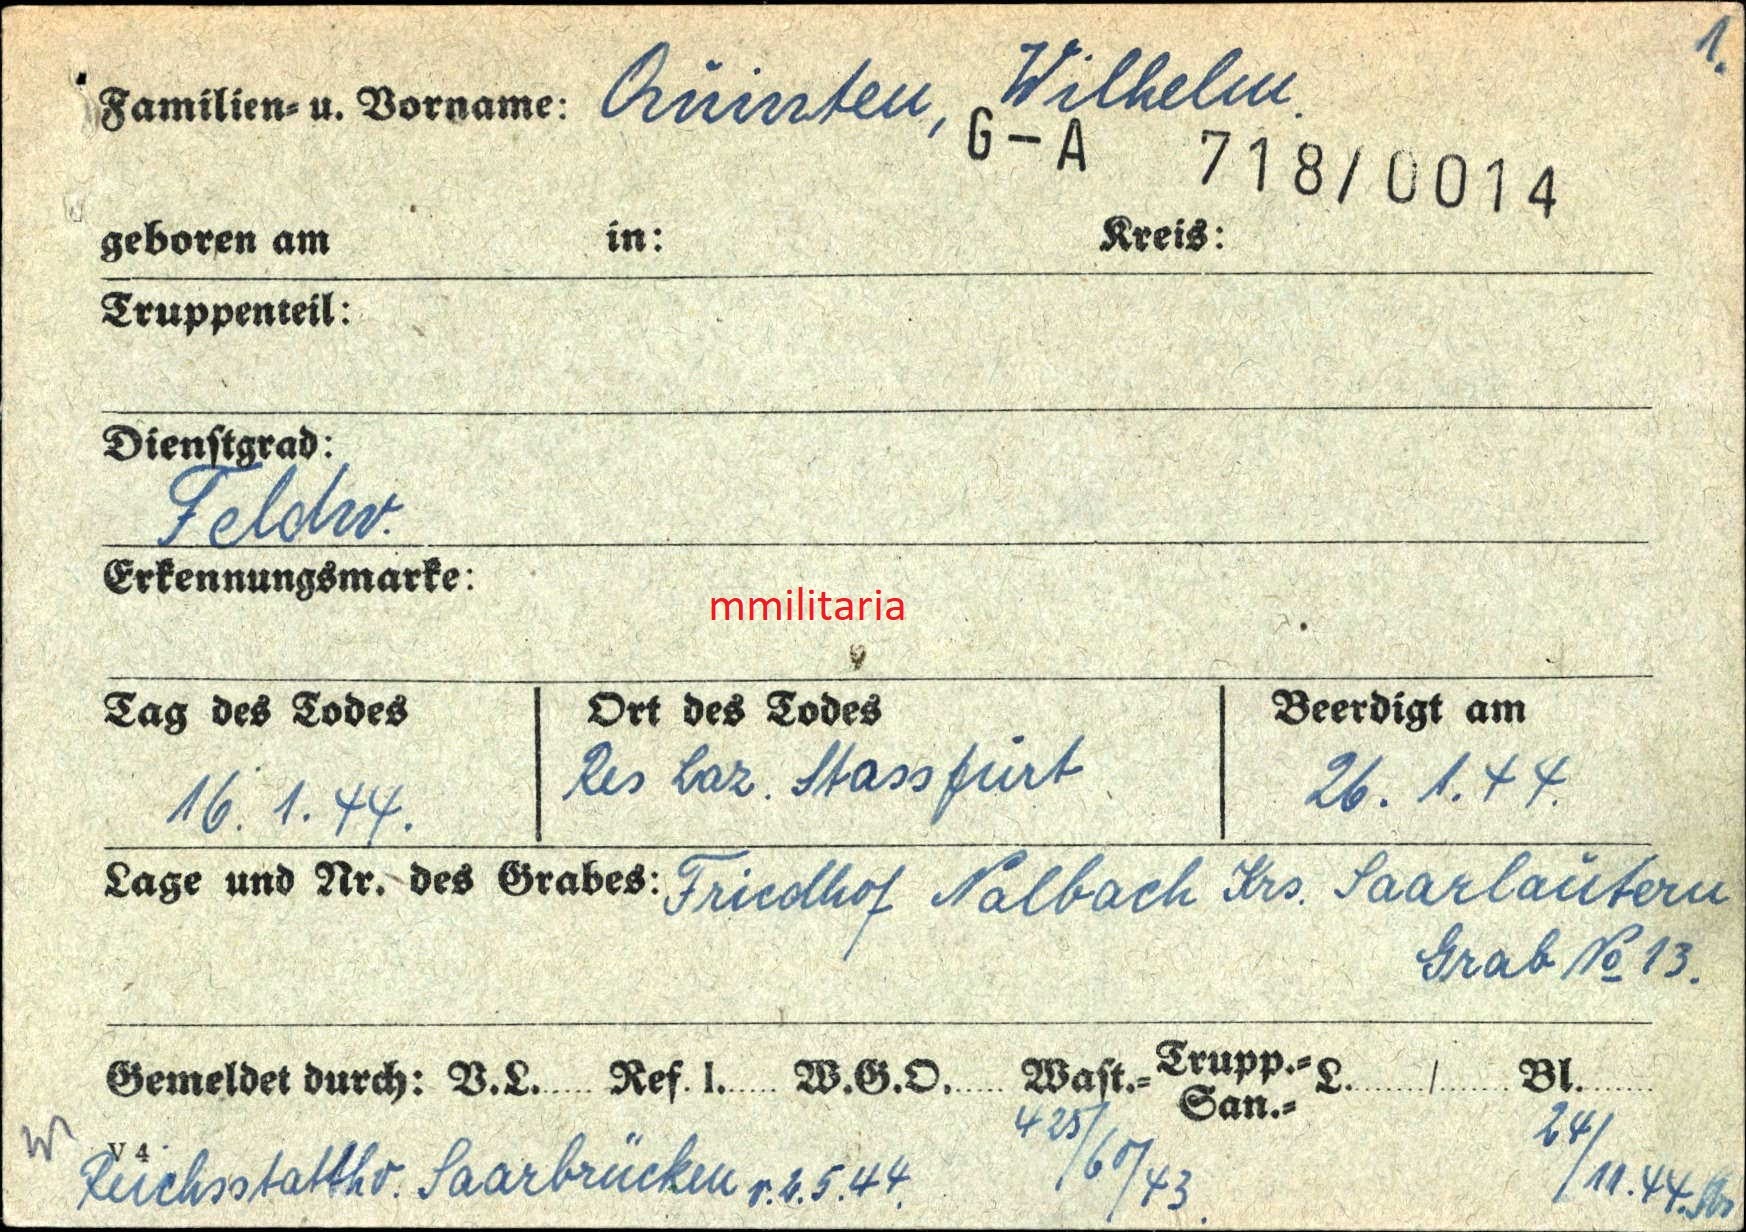 1.
Familien- u. Vorname: Quinten, Wilhelm.
G-A 718/0014
geboren am in: Kreis:
Truppenteil:
Dienstgrad:
Feldw.
Erkennungsmarke:
mmilitaria
Tag des Todes Ort des Todes Beerdigt am
16. 1. 44. Res Laz. Stassfurt 26. 1. 44.
Lage und Nr. des Grabes: Friedhof Nalbach Krs. Saarlautern
Grab No 13.
Gemeldet durch: V.L. Ref. I. W.G.O. Wast.- Trupp.- L. / Bl.
San.-
425/60/43 24/11.44.
W V 4
Reichsstatth. Saarbrücken v. 2. 5. 44.